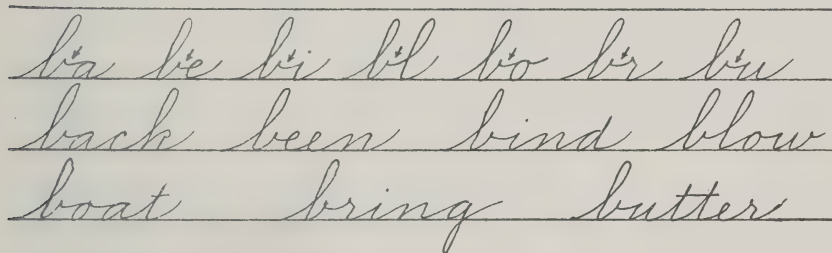 ba be bi bl bo br bu
back been bind blow
boat bring butter